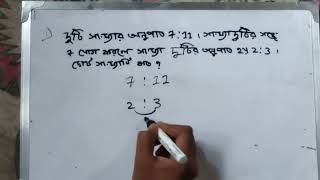 ১) দুটি সংখ্যার অনুপাত 7:11 । সংখ্যাদুটির সঙ্গে
7 যোগ করলে সংখ্যা দুটির অনুপাত হয় 2:3 ।
ছোট সংখ্যাটি কত ?
7 : 11
2 : 3